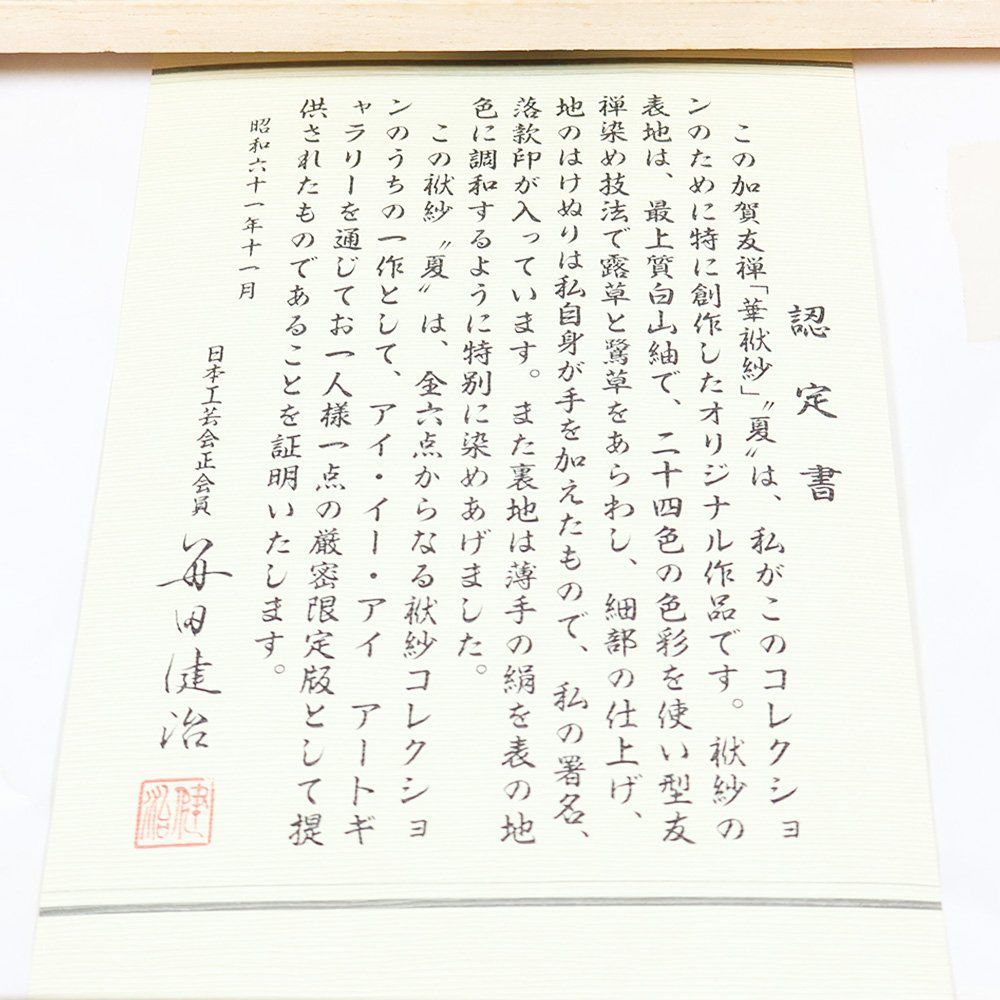 認定書
この加賀友禅「華袱紗」〝夏〟は、私がこのコレクショ
ンのために特に創作したオリジナル作品です。袱紗の
表地は、最上質白山紬で、二十四色の色彩を使い型友
禅染め技法で露草と鷺草をあらわし、細部の仕上げ、
地のはけぬりは私自身が手を加えたもので、私の署名、
落款印が入っています。また裏地は薄手の絹を表の地
色に調和するように特別に染めあげました。
この袱紗〝夏〟は、全六点からなる袱紗コレクショ
ンのうちの一作として、アイ・イー・アイ アートギ
ャラリーを通じてお一人様一点の厳密限定版として提
供されたものであることを証明いたします。
昭和六十一年十一月
日本工芸会正会員 毎田健治
健治